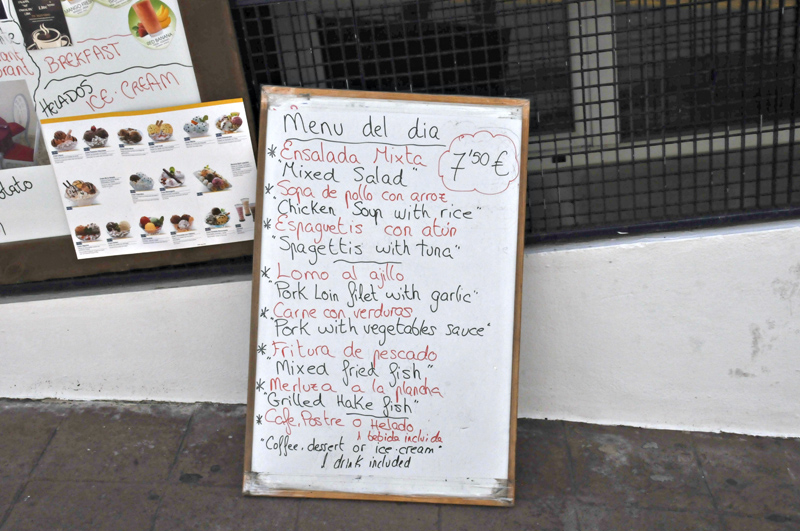 BREKFAST
HELADOS
ICE-CREAM
Menu del dia
7'50€
* Ensalada Mixta
"Mixed Salad"
* Sopa de pollo con arroz
"Chicken Soup with rice"
* Espaguetis con atún
"Spagettis with tuna"
* Lomo al ajillo
"Pork Loin filet with garlic"
* Carne con verduras
"Pork with vegetables sauce"
* Fritura de pescado
"Mixed fried fish"
* Merluza a la plancha
"Grilled Hake fish"
* Cafe, Postre o Helado
1 bebida incluida
"Coffee, dessert or ice-cream"
1 drink included